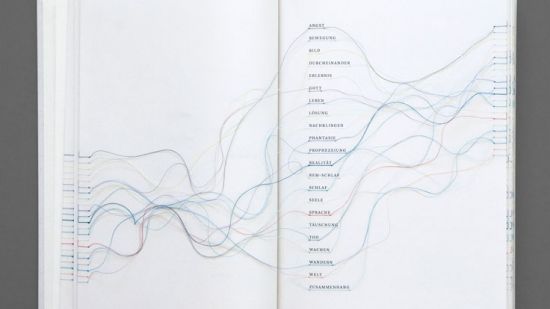 ANGST
BEWEGUNG
BILD
DURCHEINANDER
ERLEBNIS
GOTT
LEBEN
LÖSUNG
NACHKLINGEN
PHANTASIE
PROPHEZEIUNG
REALITÄT
REM-SCHLAF
SCHLAF
SEELE
SPRACHE
TÄUSCHUNG
TOD
WACHEN
WANDERN
WELT
ZUSAMMENHANG